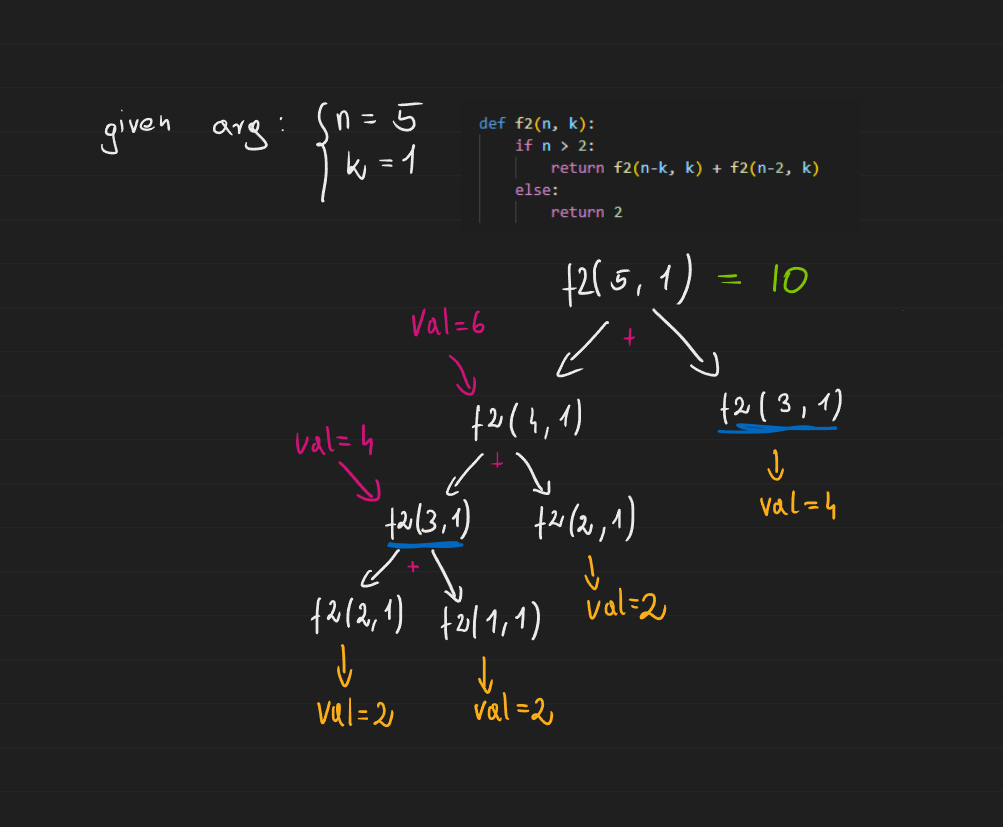 given arg: { n = 5
k = 1
def f2(n, k):
if n > 2:
return f2(n-k, k) + f2(n-2, k)
else:
return 2
f2(5, 1) = 10
+
Val=6
f2(4,1)
f2(3,1)
val=4
+
val=4
f2(3,1)
f2(2,1)
+
val=2
f2(2,1)
f2(1,1)
val=2
val=2